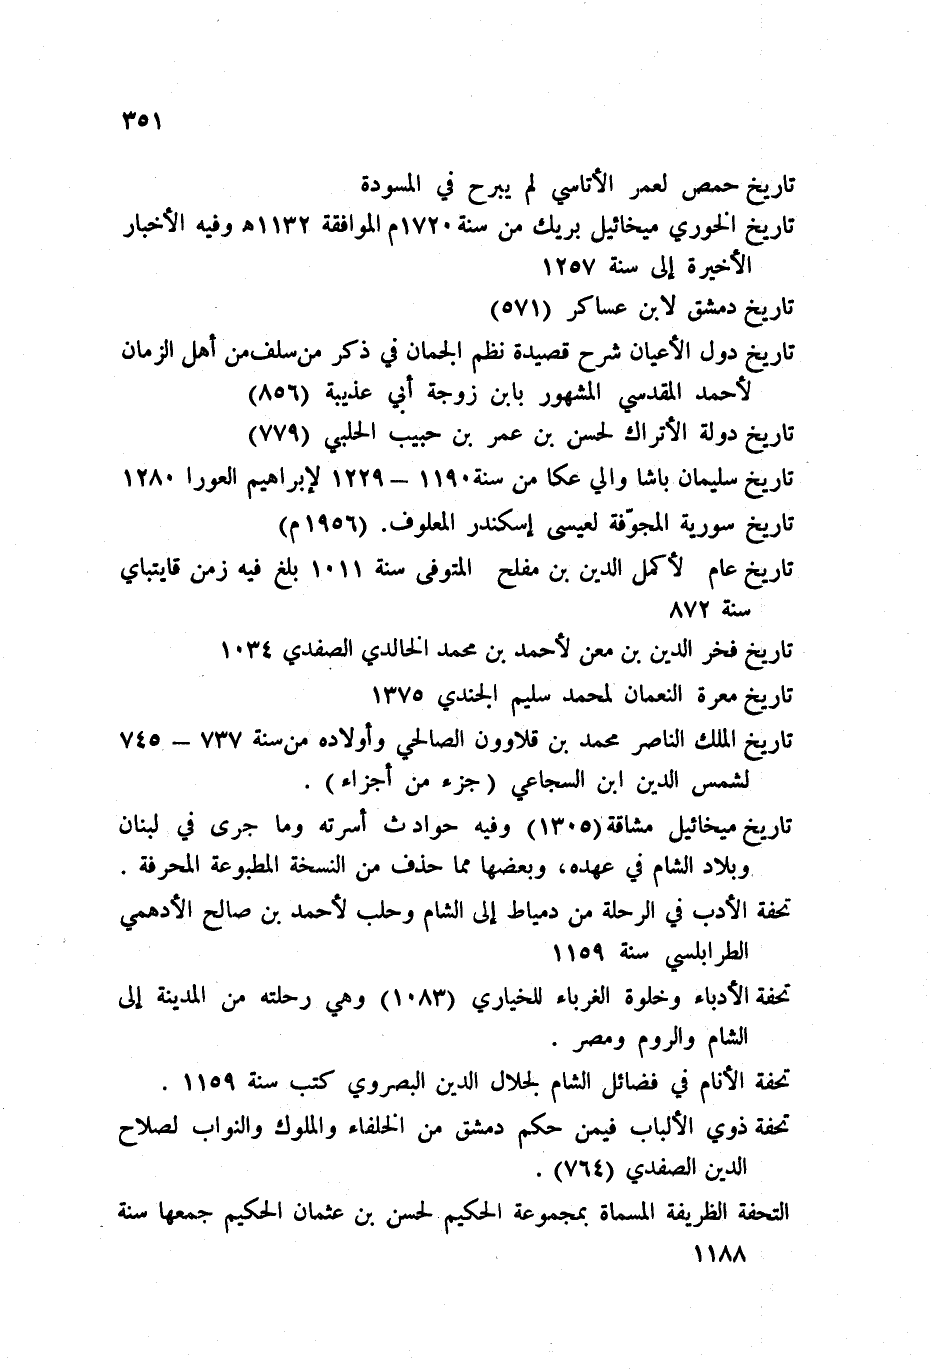 ٣٥١
تاريخ حمص لعمر الأتاسي لم يبرح في المسودة
تاريخ الخوري ميخائيل بريك من سنة ١٧٢٠م الموافقة ١١٣٢ه وفيه الأخبار
الأخيرة إلى سنة ١٢٥٧
تاريخ دمشق لابن عساكر (٥٧١)
تاريخ دول الأعيان شرح قصيدة نظم الجمان في ذكر من سلف من أهل الزمان
لأحمد المقدسي المشهور بابن زوجة أبي عذيبة (٨٥٦)
تاريخ دولة الأتراك لحسن بن عمر بن حبيب الحلبي (٧٧٩)
تاريخ سليمان باشا والي عكا من سنة ١١٩٠ – ١٢٢٩ لإبراهيم العورا ١٢٨٠
تاريخ سورية المجوّفة لعيسى إسكندر المعلوف. (١٩٥٦م)
تاريخ عام لأكمل الدين بن مفلح المتوفى سنة ١٠١١ بلغ فيه زمن قايتباي
سنة ٨٧٢
تاريخ فخر الدين بن معن لأحمد بن محمد الخالدي الصفدي ١٠٣٤
تاريخ معرة النعمان لمحمد سليم الجندي ١٣٧٥
تاريخ الملك الناصر محمد بن قلاوون الصالحي وأولاده من سنة ٧٣٧ – ٧٤٥
لشمس الدين ابن السجاعي (جزء من أجزاء) .
تاريخ ميخائيل مشاقة (١٣٠٥) وفيه حوادث أسرته وما جرى في لبنان
وبلاد الشام في عهده، وبعضها مما حذف من النسخة المطبوعة المحرفة .
تحفة الأدب في الرحلة من دمياط إلى الشام وحلب لأحمد بن صالح الأدهمي
الطرابلسي سنة ١١٥٩
تحفة الأدباء وخلوة الغرباء للخياري (١٠٨٣) وهي رحلته من المدينة إلى
الشام والروم ومصر .
تحفة الأنام في فضائل الشام لجلال الدين البصروي كتب سنة ١١٥٩ .
تحفة ذوي الألباب فيمن حكم دمشق من الخلفاء والملوك والنواب لصلاح
الدين الصفدي (٧٦٤) .
التحفة الظريفة المسماة بمجموعة الحكيم لحسن بن عثمان الحكيم جمعها سنة
١١٨٨